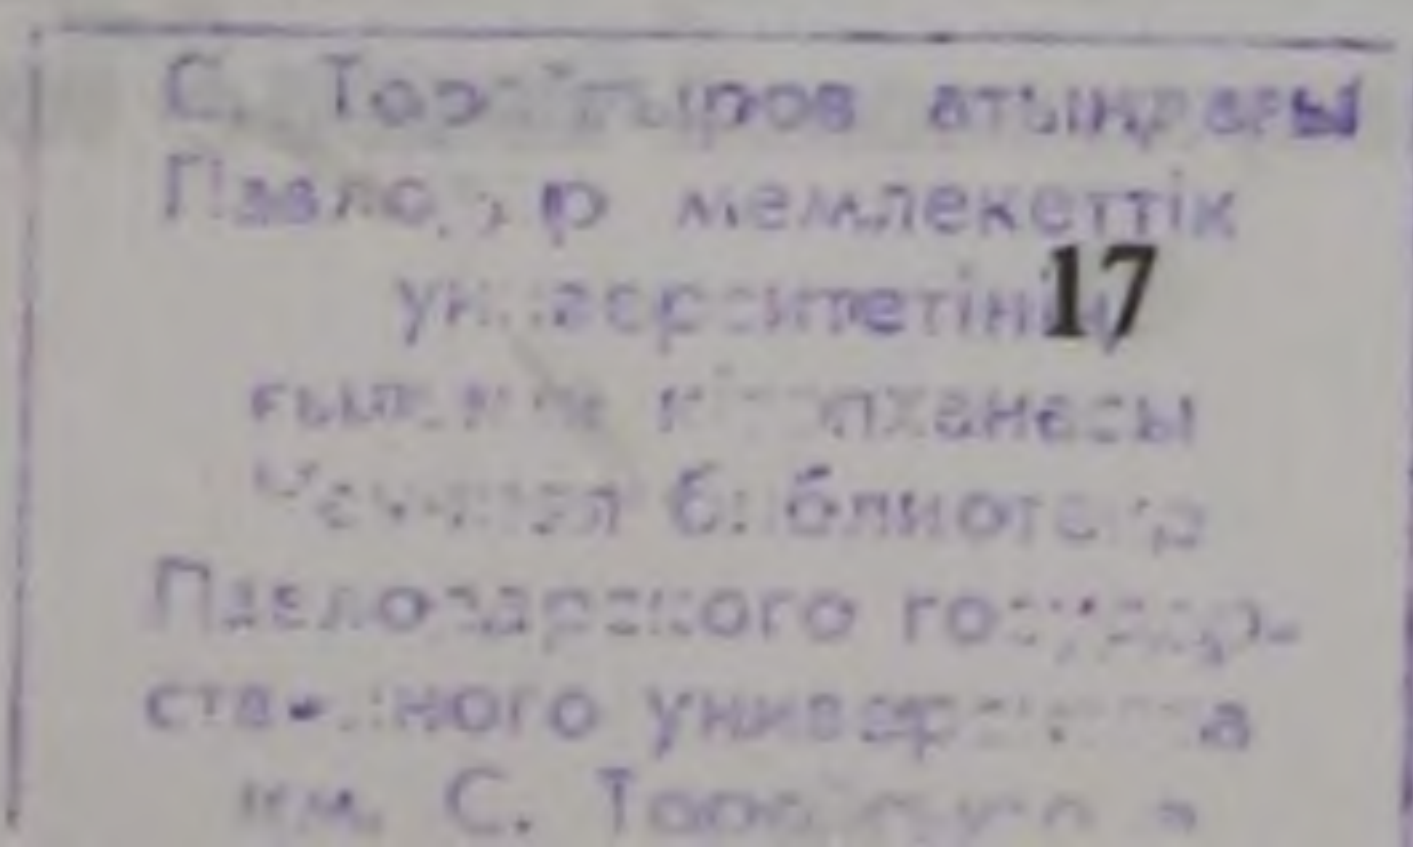 С. Торайғыров атындағы
Павлодар мемлекеттік
университетінің
17
ғылыми кітапханасы
Научная библиотека
Павлодарского государ-
ственного университета
им. С. Торайгырова